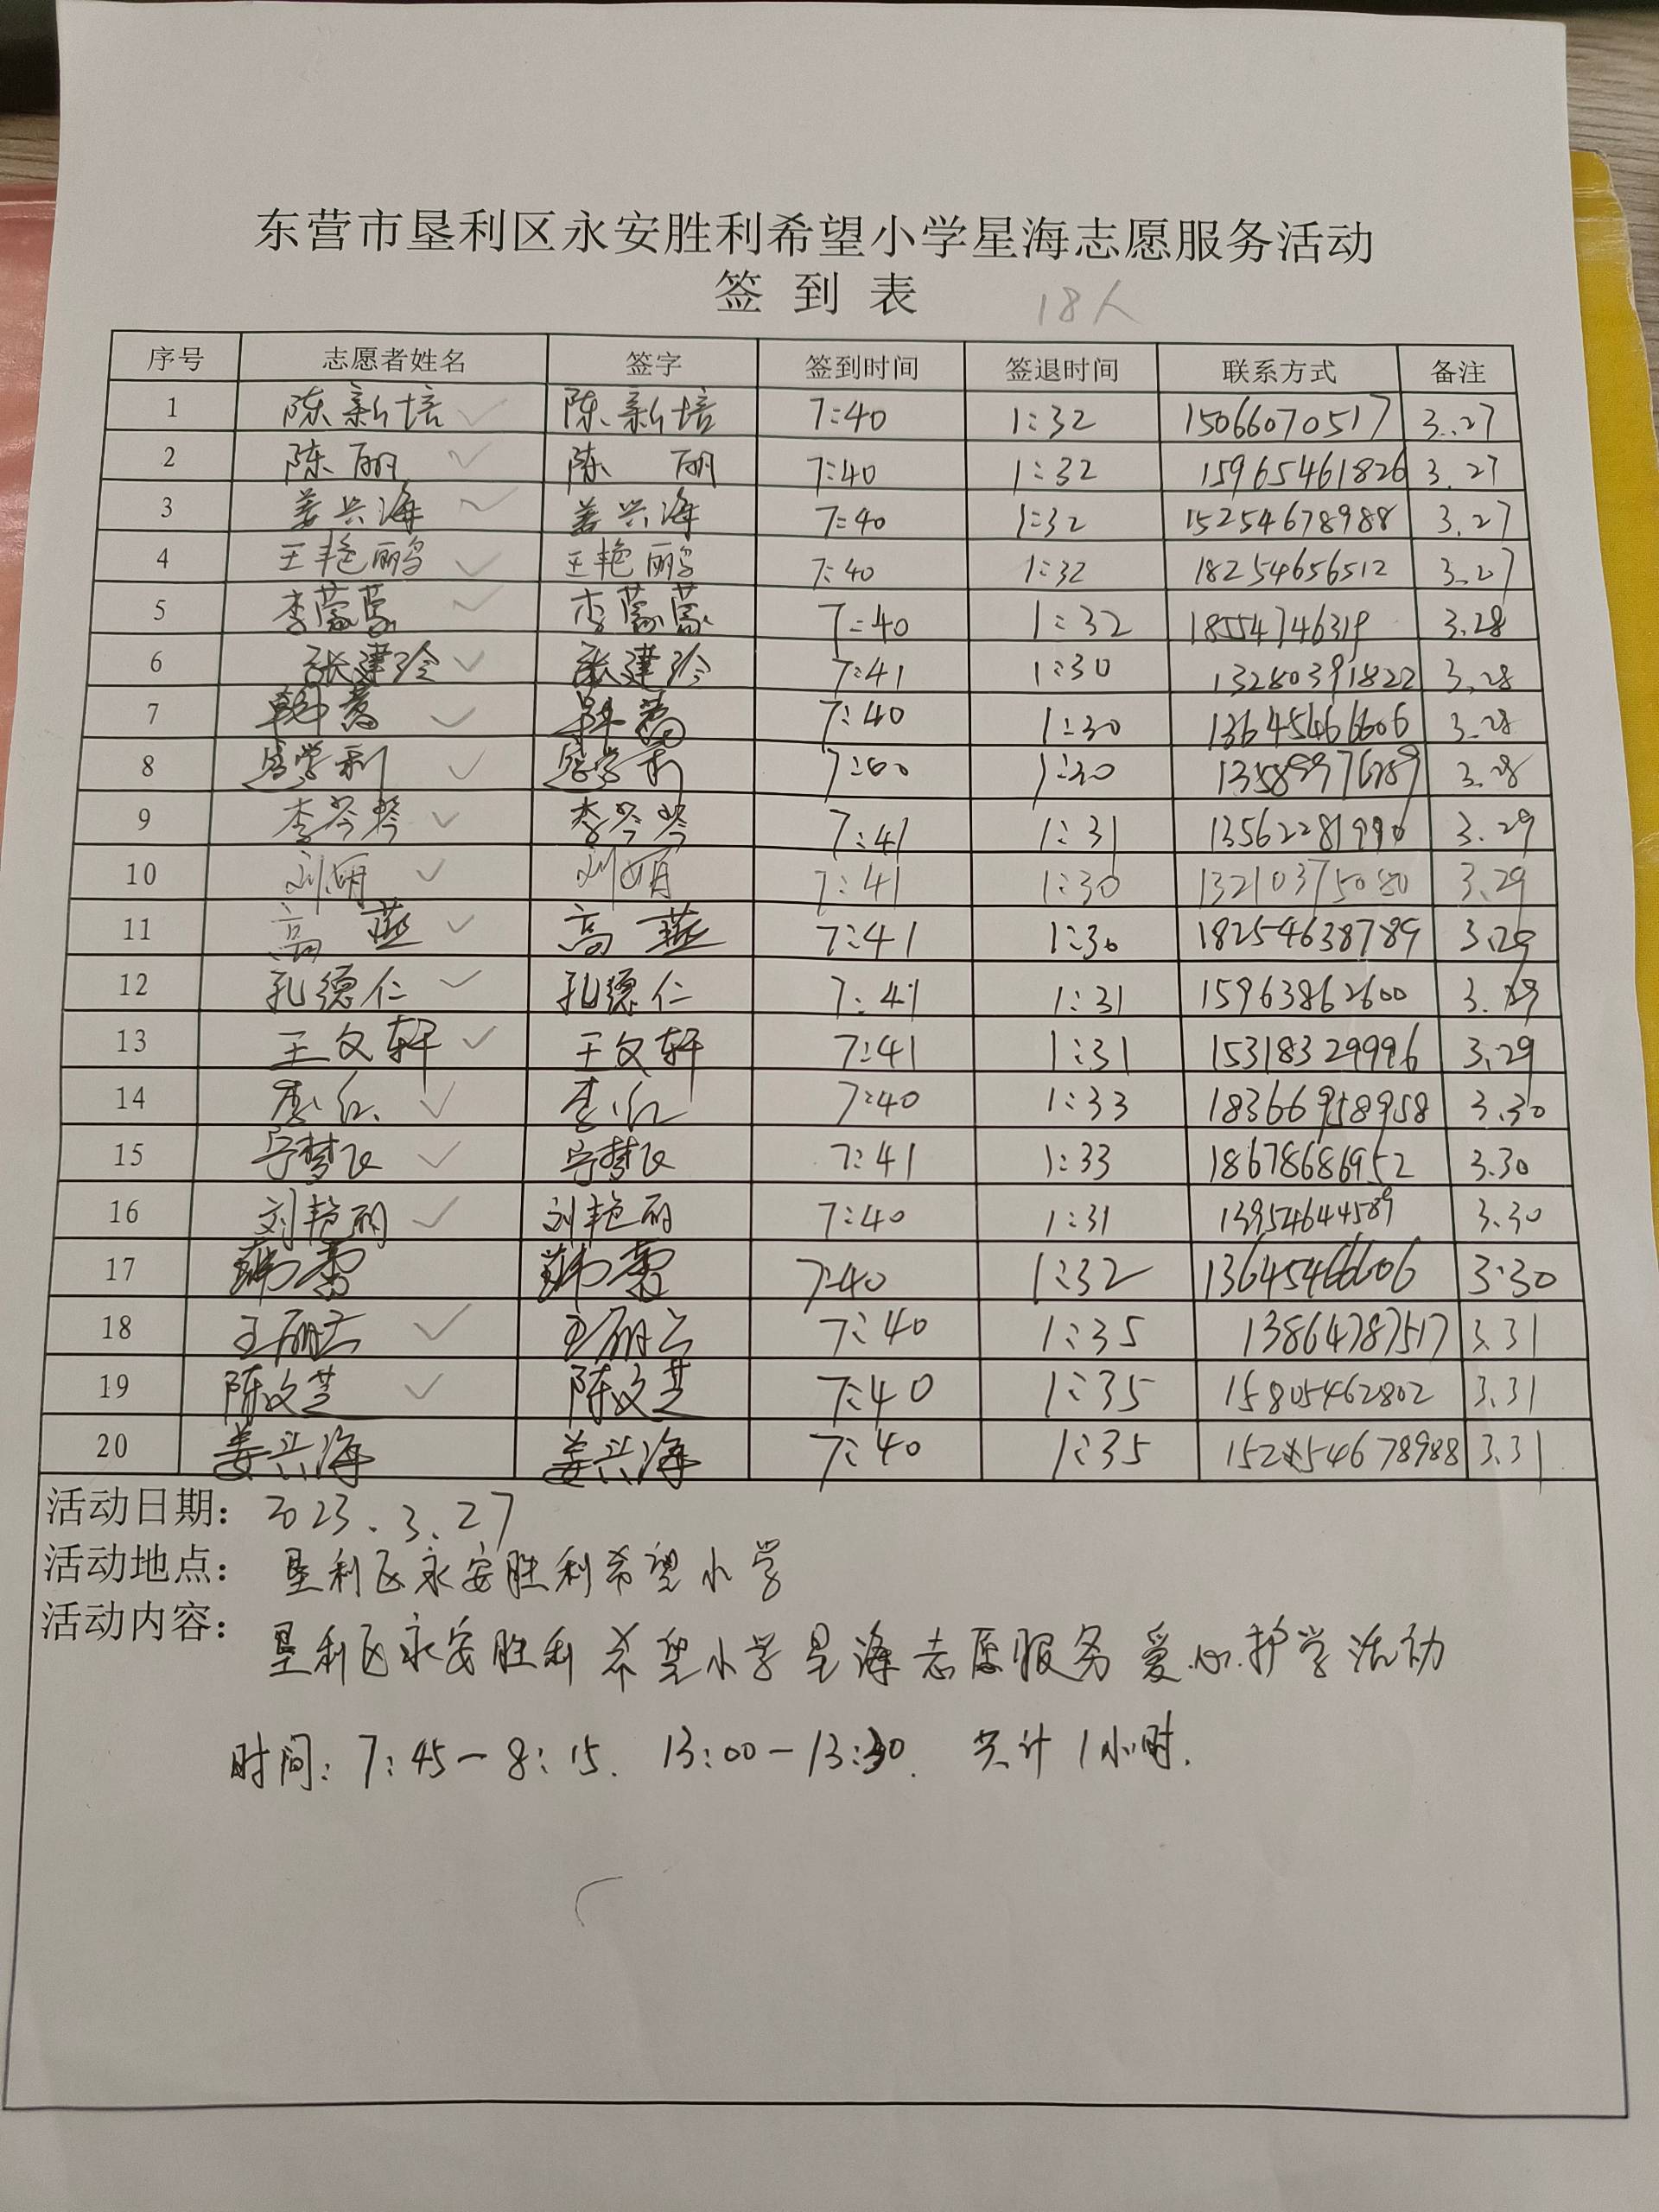 东营市垦利区永安胜利希望小学星海志愿服务活动
签 到 表 18人
序号 志愿者姓名 签字 签到时间 签退时间 联系方式 备注
1 陈新培 陈新培 7:40 1:32 15066070517 3.27
2 陈丽 陈 丽 7:40 1:32 15965461826 3.27
3 姜兴海 姜兴海 7:40 1:32 15254678988 3.27
4 王艳鹏 王艳鹏 7:40 1:32 18254656512 3.27
5 李蒙蒙 李蒙蒙 7:40 1:32 18554746319 3.28
6 张建玲 张建玲 7:41 1:30 13280391822 3.28
7 7:40 1:30 13645466606 3.28
8 学利 学利 1:30 3.28
9 李芩琴 李芩琴 7:41 1:31 13562281990 3.29
10 刘娟 刘娟 7:41 1:30 13210375080 3.29
11 高 燕 高 燕 7:41 1:30 18254638789 3.29
12 孔德仁 孔德仁 7:41 1:31 15963862600 3.29
13 王文轩 王文轩 7:41 1:31 15318329996 3.29
14 李红 李红 7:40 1:33 18366958958 3.30
15 宁梦飞 宁梦飞 7:41 1:33 18678686952 3.30
16 刘艳丽 刘艳丽 7:40 1:31 13954644589 3.30
17 7:40 1:32 13645466606 3.30
18 王丽云 王丽云 7:40 1:35 13864787517 3.31
19 陈文芝 陈文芝 7:40 1:35 15805462802 3.31
20 姜兴海 姜兴海 7:40 1:35 15254678988 3.31
活动日期：2023.3.27
活动地点：垦利区永安胜利希望小学
活动内容：垦利区永安胜利希望小学星海志愿服务爱心护学活动
时间：7:45-8:15. 13:00-13:30. 共计1小时.